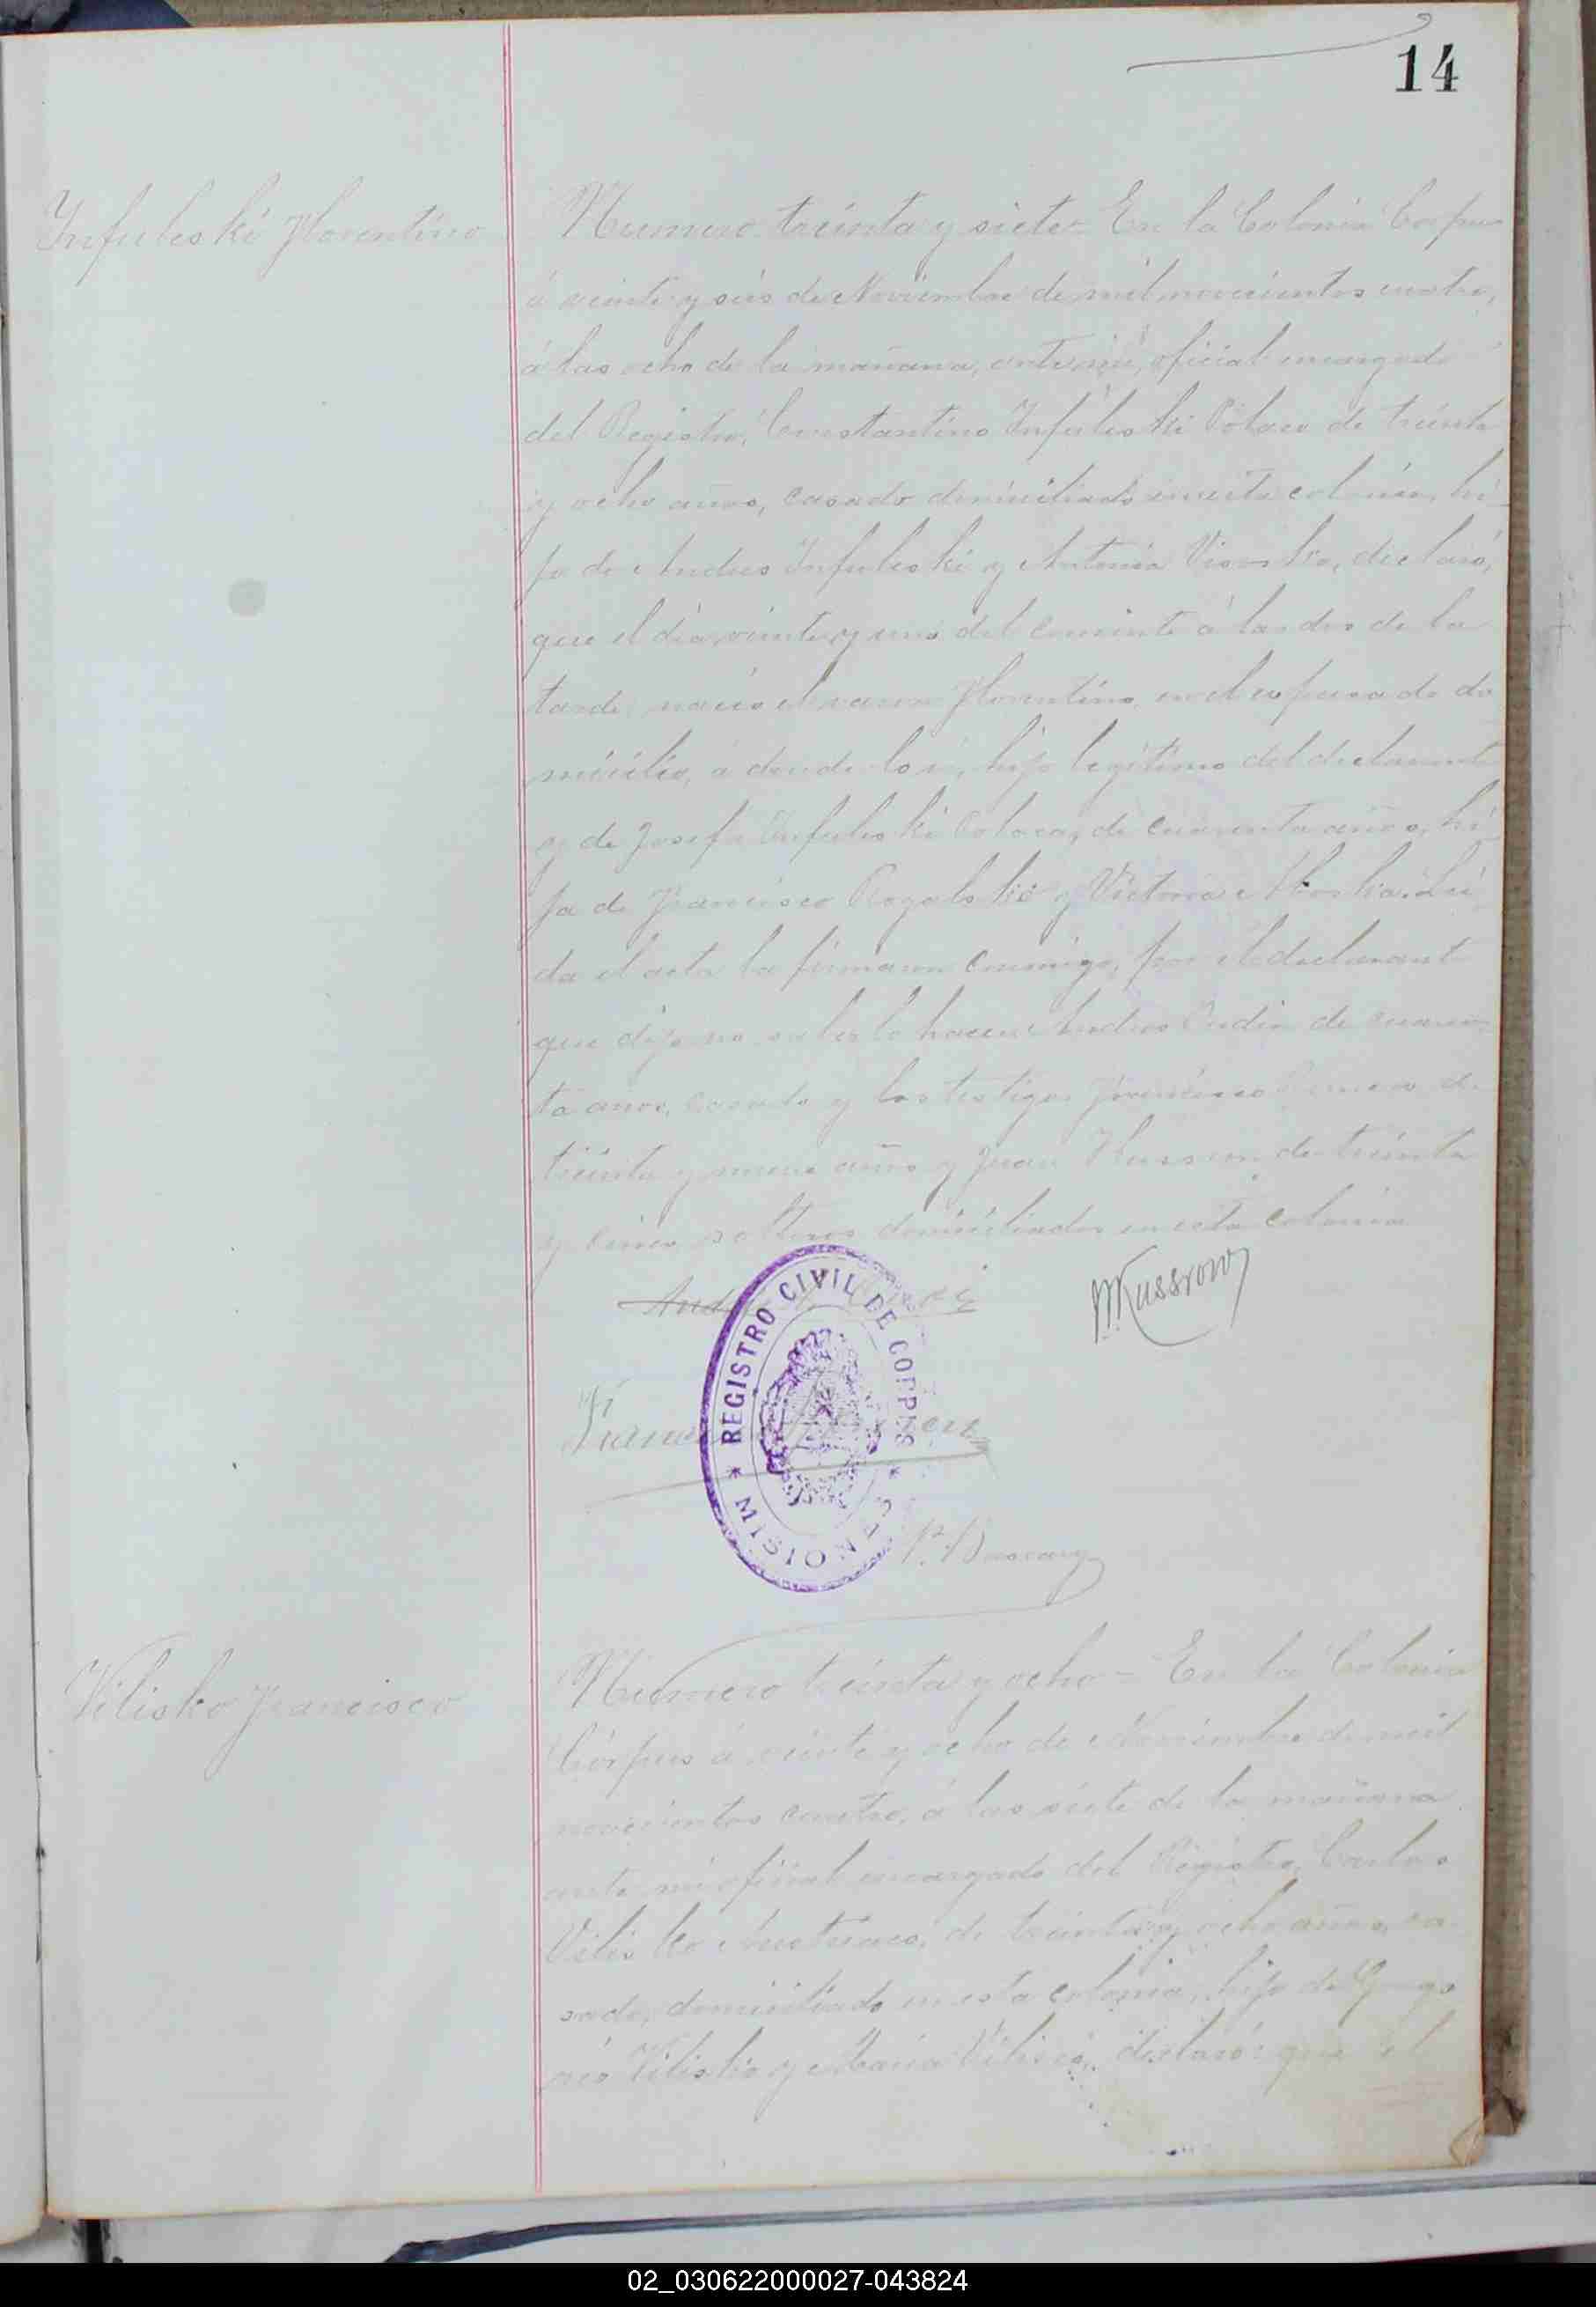 14
Infuleski Florentino
Numero treinta y siete = En la Colonia Corpus
á veinte y seis de Noviembre de mil novecientos cuatro,
á las ocho de la mañana, ante mi, oficial encargado
del Registro, Constantino Infuleski Polaco de treinta
y ocho años, casado domiciliado en esta colonia, hi
jo de Andres Infuleski y Antonia declaró,
que el dia veinte y uno del corriente á las dos de la
tarde, nació el varon Florentino, en el expresado do
micilio, á donde lo vi, hijo legitimo del declarante
y de Josefa Infuleski Polaca, de cuarenta años, hi
ja de Francisco Rogalski y Victoria Lei
da el acta la firmaron conmigo, por el declarante
que dijo no saber lo hace Andres de cuaren
ta años, casado y los testigos Francisco de
treinta y nueve años y Juan Kussrow de treinta
y cinco, solteros domiciliados en esta colonia
Kussrow
REGISTRO CIVIL DE CORPUS
* MISIONES *
Vilisko Francisco
Numero treinta y ocho = En la Colonia
Córpus á veinte y ocho de Noviembre de mil
novecientos cuatro, á las siete de la mañana
ante mi oficial encargado del Registro, Carlos
Vilisko Austriaco, de treinta y ocho años, ca
sado, domiciliado en esta colonia, hijo de Grego
rio Vilisko y Maria declaró: que el
02_030622000027-043824